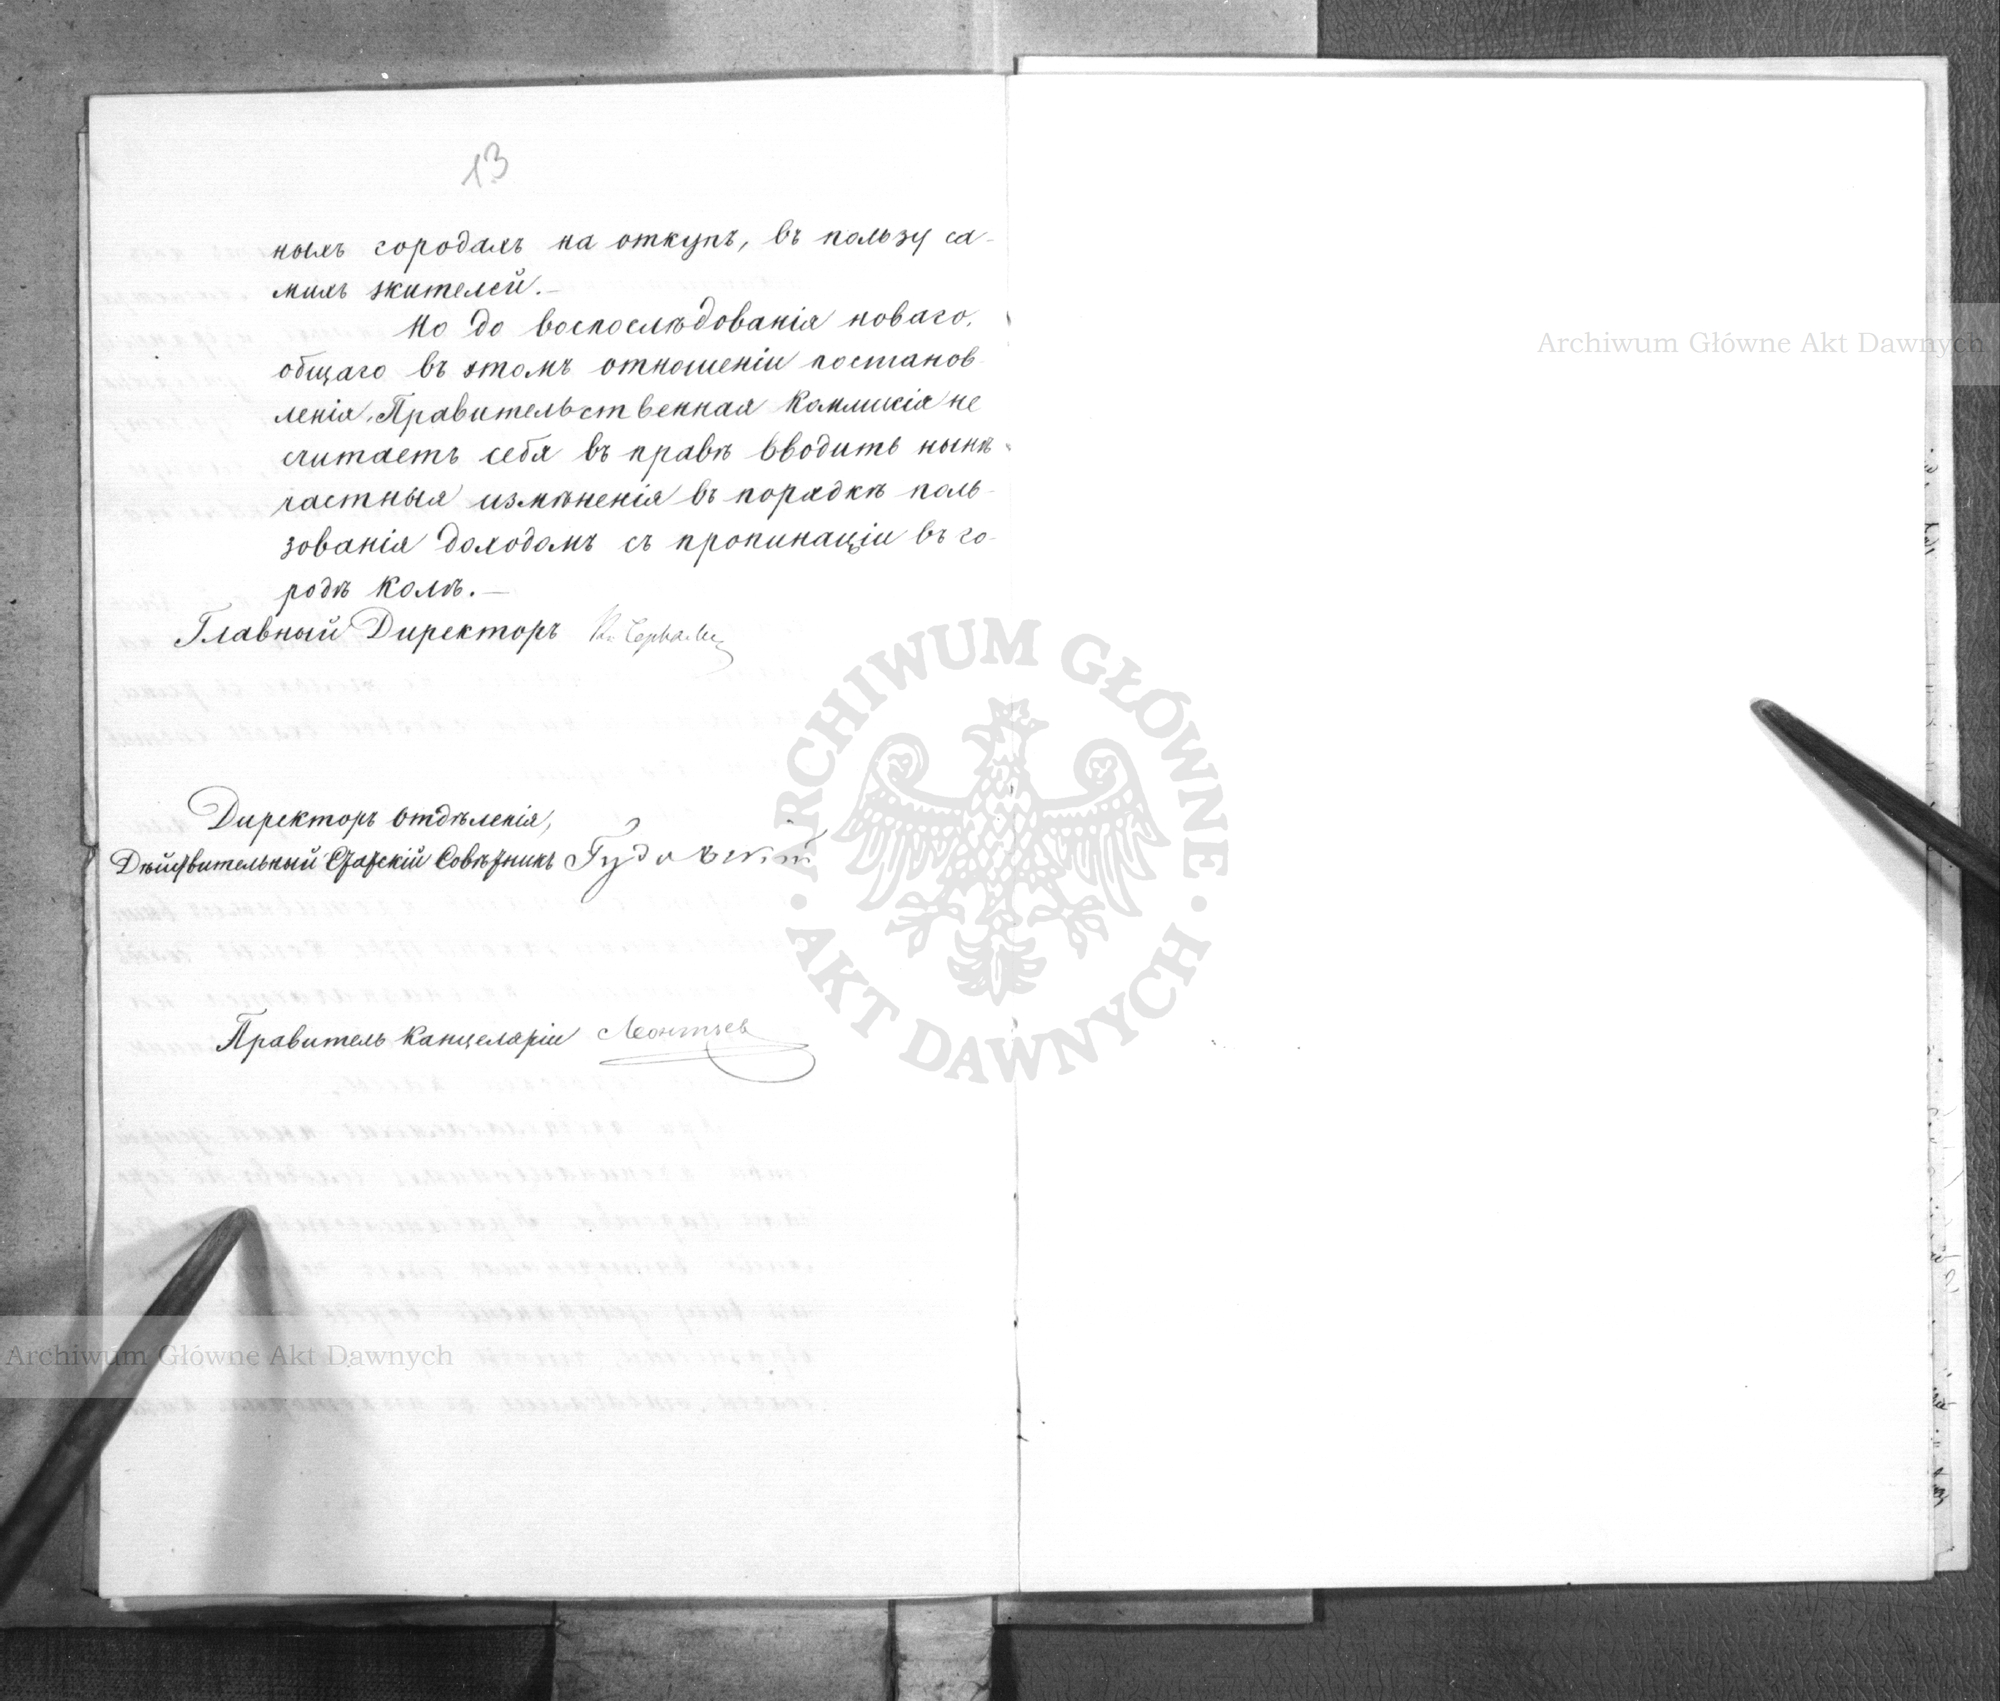 13
ныхъ городахъ на откупъ, въ пользу са-
михъ жителей.—
Но до воспослѣдованія новаго,
общаго въ этомъ отношеніи постанов-
ленія, Правительственная Коммисія не
считаетъ себя въ правѣ вводить нынѣ
частныя измѣненія въ порядкѣ поль-
зованія доходомъ съ пропинаціи въ го-
родѣ Колѣ.—
Главный Директоръ
Директоръ Отдѣленія,
Дѣйствительный Статскій Совѣтникъ Гудовскій
Правитель Канцеляріи Леонтьев
Archiwum Główne Akt Dawnych
ARCHIWUM GŁÓWNE
AKT DAWNYCH
Archiwum Główne Akt Dawnych